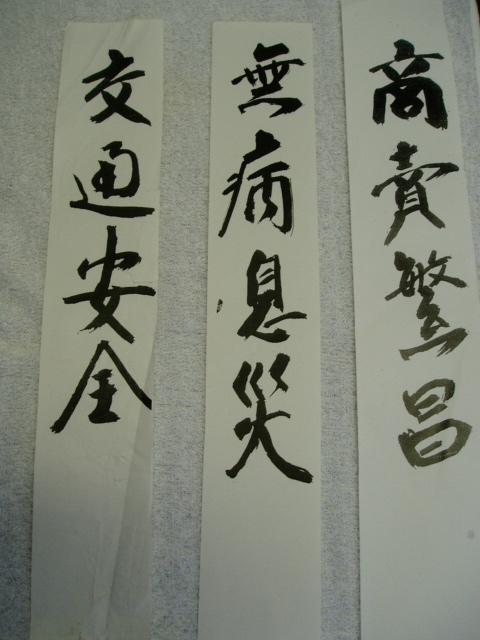 商賣繁昌
無病息災
交通安全